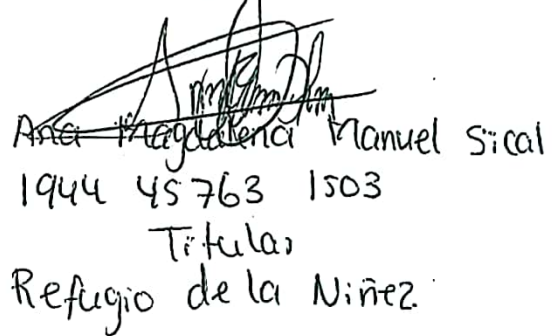 Ana Magdalena Manuel Sical
1944 45763 1503
Titular
Refugio de la Niñez